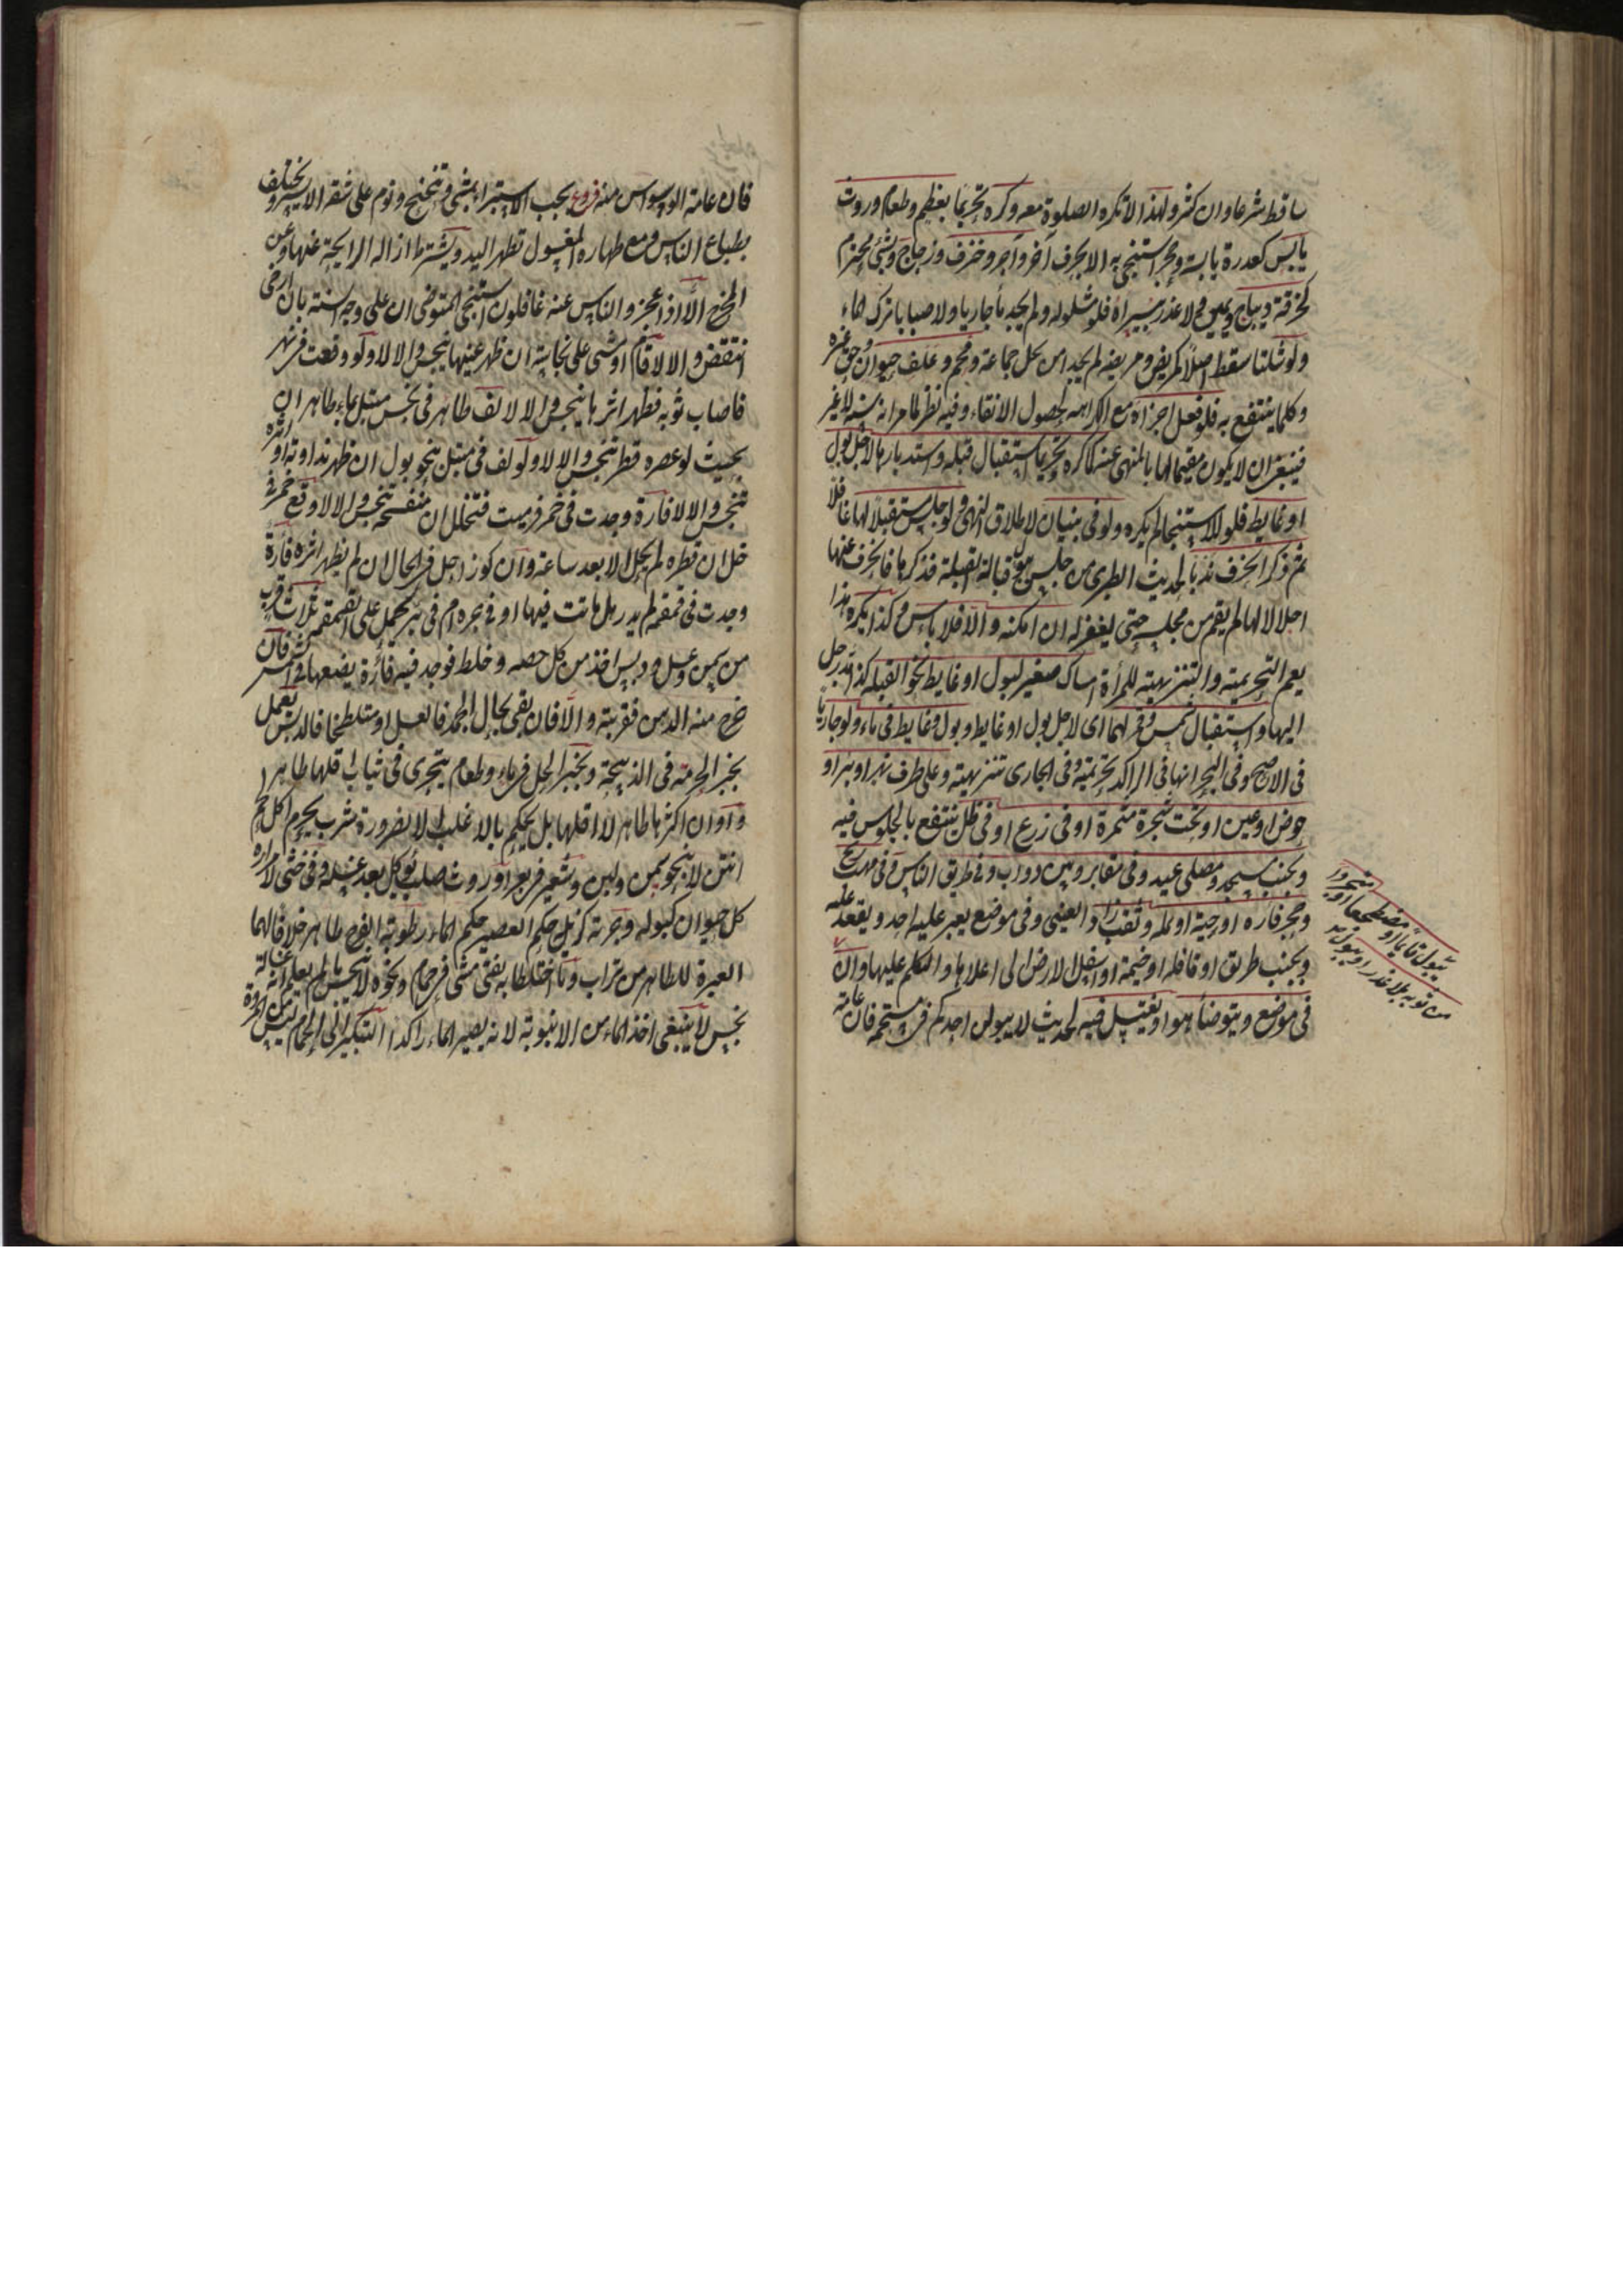 ساقط شرعا وان كثر ولهذا لا تكره الصلوة معه وكره تحريما بعظم وطعام وروث
يابس كعذرة يابسة وحجر استنجى به الا بحرف آخر وآجر وخزف وزجاج وشئ محترم
كخرقة ديباج ويمين ولا عذر بيسراه فلو شلوله ولم يجد ماء جاريا ولا صبابا ترك الماء
ولو شلتا سقط اصلا كمريض ومريضة لم يجد امن يحل جماعه وفحم وعلف حيوان وحق غيره
وكلما ينتفع به فلو فعل اجزاه مع الكراهه لحصول الانقاء وفيه نظر لما مر انه سنة لا غير
فينبغي ان لا يكون مقيما لها بالمنهى عنه كما كره تحريما استقبال قبله واستدبارها لاجل بول
او غايط فلو للاستنجا لم يكره ولو في بنيان لاطلاق النهي ولو جلس مستقبلا لها غافلا
ثم ذكر انحرف ندبا لحديث الطبري من جلس يبول قبالة القبلة فذكرها فانحرف عنها
اجلالا لها لم يقم من مجلسه حتى يغفر له ان امكنه والا فلا باس وكذا يكره هذا
يعم التحريمية والتنزيهية للمرأة امساك صغير لبول او غايط نحو القبلة كذا مد رجل
اليها واستقبال شمس وقمر لهما اى لاجل بول او غايط وبول وغايط في ماء ولو جاريا
في الاصح وفى البحر انها فى الراكد تحريمية وفى الجارى تنزيهية وعلى طرف نهر او بئر او
حوض او عين او تحت شجرة مثمرة او فى زرع او فى ظل ينتفع بالجلوس فيه
وبجنب مسجد ومصلى عيد وفى مقابر وبين دواب وفى طريق الناس وفى مهب ريح
وجحر فاره او حية او نملة وثقب زاد العينى وفى موضع يعبر عليه احد ويقعد عليه
وبجنب طريق او قافلة او خيمة او اسفل الارض الى اعلاها والتكلم عليها وان
يبول قائما او مضطجعا او متجردا
من ثوبه بلا عذر او يبول
فى موضع ويتوضأ هو او يغتسل فيه لحديث لا يبولن احدكم فى مستحمه فان عامة
فان عامة الوسواس منه فروع يجب الاستبرا بمشى وتنحنح ونوم على شقه الايسر ويختلف
بطباع الناس ومع طهارة المغسول تطهر اليد ويشترط ازالة الرايحة عنها وعن
المخرج الا اذا عجز والناس عنه غافلون استنجى المتوضى ان على وجه السنة بان ارخى
انتقض والا لا قام او مشى على نجاسة ان ظهر عينها تنجس والا لا ولو وقعت فى نهر
فاصاب ثوبه فظهر اثرها تنجس والا لا لف طاهر فى نجس مبتل بماء طاهر ان
بحيث لو عصره قطر تنجس والا لا ولو لف فى مبتل بنحو بول ان ظهر نداوته او اثره
تنجس والا لا فارة وجدت فى خمر فرميت فتخلل ان منفسخة تنجس والا لا وقع خمر فى
خل ان قطرة لم يحل الا بعد ساعة وان كوزا حل فى الحال ان لم يظهر اثره فأرة
وجدت فى قمقمة لم يدر هل ماتت فيها او فى جره ام فى بئر يحمل على القمقمة ثلاث قرب
من سمن وعسل ودبس اخذ من كل حصه وخلط فوجد فيه فأرة يضعها فى الشمس فان
خرج منه الدهن فقربته والا فان بقى بحال الجمد فالعسل او متلطخا فالدبس يعمل
بخبر الحرمة فى الذبيحة وبخبر الحل فى ماء وطعام يتحرى فى ثياب اقلها طاهر
واوان اكثرها طاهر لا اقلها بل يحكم بالاغلب الا لضرورة شرب يحرم اكل لحم
انتن لا نحو سمن ولبن وشعير فى بعر او روث صلب يؤكل بعد غسله وفى خثى لا مرارة
كل حيوان كبوله وجرته كزبله حكم العصير حكم الماء رطوبة الفرج طاهر خلافا لهما
العبرة للطاهر من تراب وماء اختلطا به يفتى مشى فى حمام ونحوه لا ينجس ما لم يعلم انه غسالة
نجس لا ينبغى اخذ الماء من الانبوبة لانه يصير الماء راكدا التبكير الى الحمام ليس من المروة